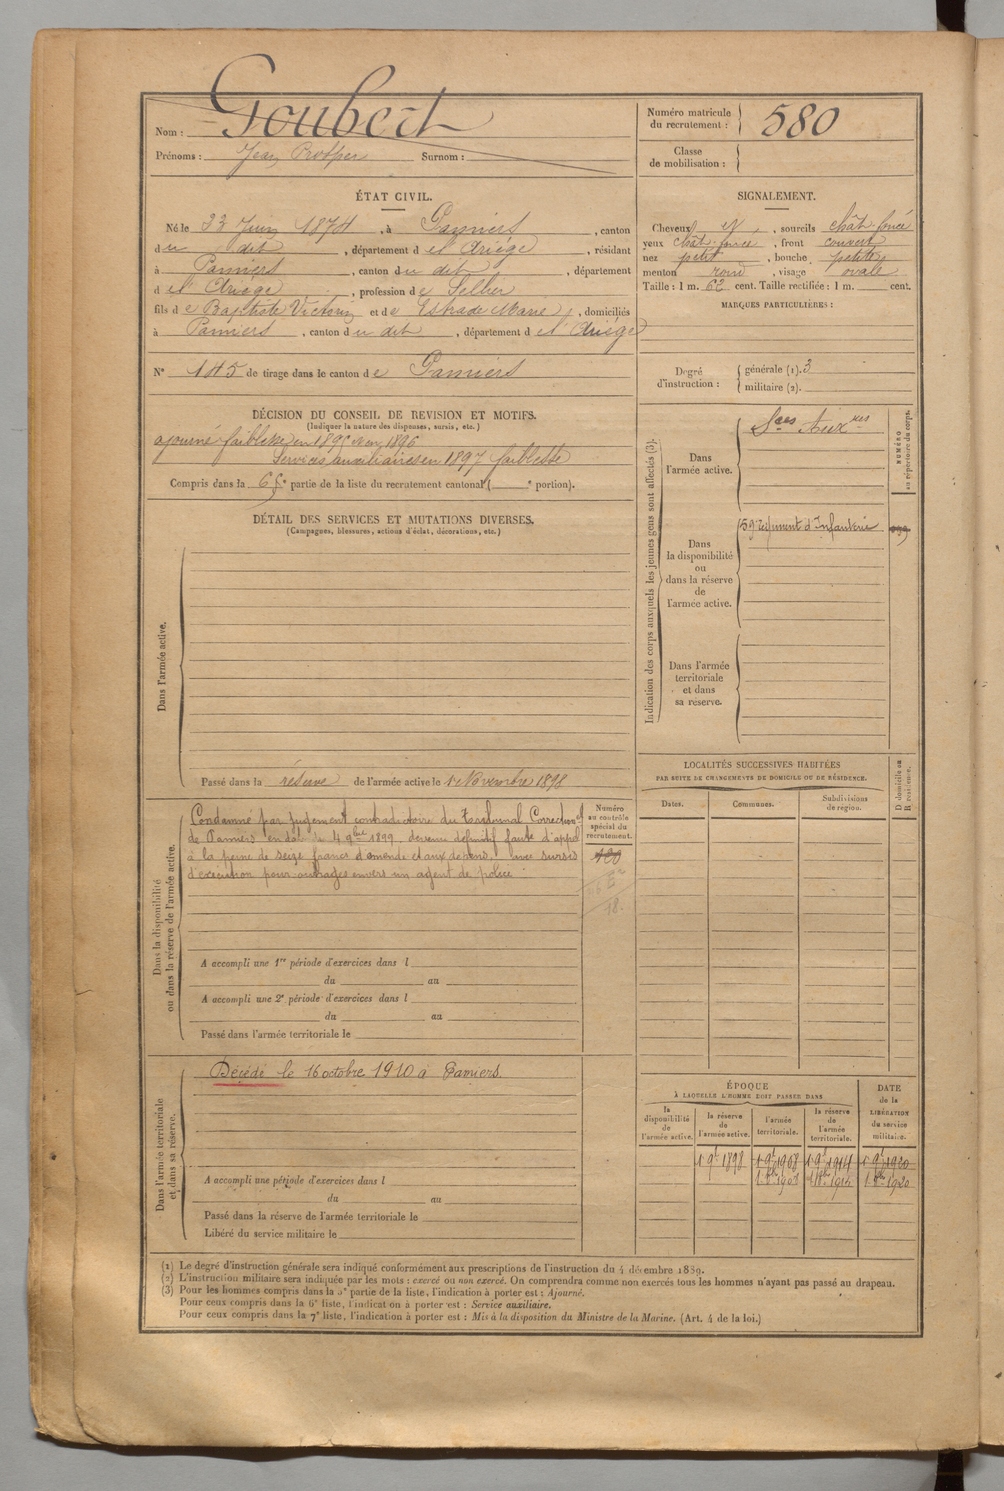 Nom : Goubert
Prénoms : Jean Prosper Surnom :
Numéro matricule du recrutement : 580
Classe de mobilisation :
ÉTAT CIVIL.
Né le 23 Juin 1874, à Pamiers, canton
du dit, département de l'Ariège, résidant
à Pamiers, canton du dit, département
de l'Ariège, profession de Sellier
fils de Baptiste Victorin et de Eskade Marie, domiciliés
à Pamiers, canton du dit, département de l'Ariège
N° 145 de tirage dans le canton de Pamiers
SIGNALEMENT.
Cheveux et, sourcils chât foncé
yeux chât foncé, front couvert
nez petit, bouche petite
menton rond, visage ovale
Taille : 1 m. 62 cent. Taille rectifiée : 1 m. cent.
MARQUES PARTICULIÈRES :
Degré d'instruction : générale (1). 3
militaire (2).
DÉCISION DU CONSEIL DE REVISION ET MOTIFS.
(Indiquer la nature des dispenses, sursis, etc.)
ajourné faiblesse en 1895 et en 1896
Services auxiliaires en 1897 faiblesse
Compris dans la 6e partie de la liste du recrutement cantonal ( e portion).
DÉTAIL DES SERVICES ET MUTATIONS DIVERSES.
(Campagnes, blessures, actions d'éclat, décorations, etc.)
Dans l'armée active.
Passé dans la réserve de l'armée active le 1er Novembre 1898
Indication des corps auxquels les jeunes gens sont affectés (3).
Dans l'armée active.
Sces Auxres
NUMÉRO au répertoire du corps.
Dans la disponibilité ou dans la réserve de l'armée active.
59e régiment d'Infanterie
Dans l'armée territoriale et dans sa réserve.
Dans la disponibilité ou dans la réserve de l'armée active.
Condamné par jugement contradictoire du Tribunal Correctionel
de Pamiers en date du 4 9bre 1899 devenu définitif faute d'appel
à la peine de seize francs d'amende et aux dépens avec sursis
d'exécution pour outrages envers un agent de police
Numéro au contrôle spécial du recrutement.
A accompli une 1re période d'exercices dans l
du au
A accompli une 2e période d'exercices dans l
du au
Passé dans l'armée territoriale le
LOCALITÉS SUCCESSIVES HABITÉES
PAR SUITE DE CHANGEMENTS DE DOMICILE OU DE RÉSIDENCE.
Dates. Communes. Subdivisions de région. D domicile ou R résidence.
Dans l'armée territoriale et dans sa réserve.
Décédé le 16 octobre 1910 à Pamiers.
A accompli une période d'exercices dans l
du au
Passé dans la réserve de l'armée territoriale le
Libéré du service militaire le
ÉPOQUE
À LAQUELLE L'HOMME DOIT PASSER DANS
la disponibilité de l'armée active. la réserve de l'armée active. l'armée territoriale. la réserve de l'armée territoriale. DATE de la LIBÉRATION du service militaire.
1 9e 1898 1 9e 1908 1 9e 1914 1 9e 1920
(1) Le degré d'instruction générale sera indiqué conformément aux prescriptions de l'instruction du 4 décembre 1889.
(2) L'instruction militaire sera indiquée par les mots : exercé ou non exercé. On comprendra comme non exercés tous les hommes n'ayant pas passé au drapeau.
(3) Pour les hommes compris dans la 5e partie de la liste, l'indication à porter est : Ajourné.
Pour ceux compris dans la 6e liste, l'indication à porter est : Service auxiliaire.
Pour ceux compris dans la 7e liste, l'indication à porter est : Mis à la disposition du Ministre de la Marine. (Art. 4 de la loi.)